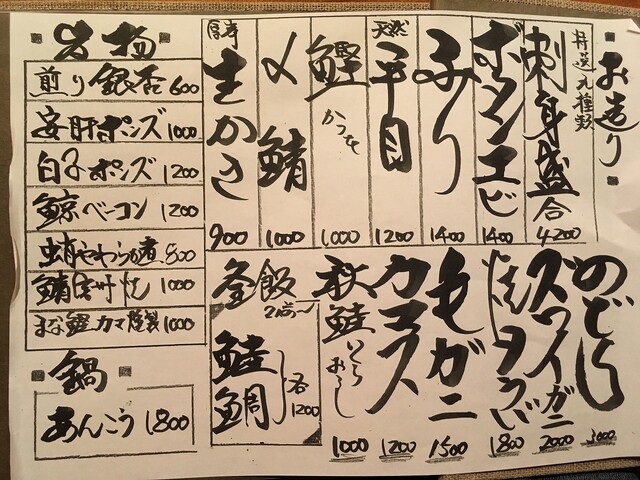 お造り
特選九種類
刺身盛合
4200
ボタンエビ
1400
ぶり
1400
天然
平目
1200
鰹
かつを
1000
〆鯖
1000
厚岸
生かき
900
のどぐろ
3000
ズワイガニ
2000
焼タラバ
1800
毛ガニ
1500
カマス
1200
秋鮭いくらおろし
1000
釜飯
2人前〜
鮭
鯛
各1200
煎り銀杏 600
安肝ポンズ 1000
白子ポンズ 1200
鯨ベーコン 1200
蛸やわらか煮 800
まな鰹カマ燻製 1000
鍋
あんこう 1800